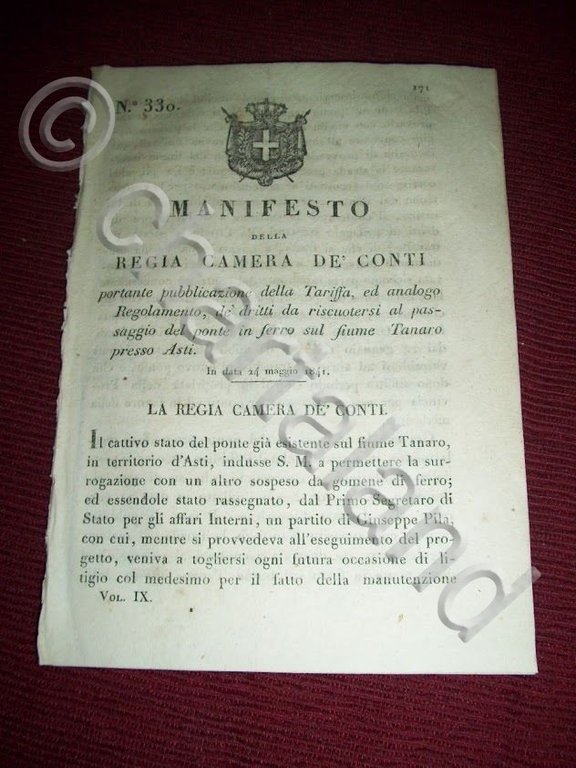 171
N.º 330.
MANIFESTO
DELLA
REGIA CAMERA DE' CONTI
portante pubblicazione della Tariffa, ed analogo
Regolamento, de' dritti da riscuotersi al pas-
saggio del ponte in ferro sul fiume Tanaro
presso Asti.
In data 24 maggio 1841.
LA REGIA CAMERA DE' CONTI.
Il cattivo stato del ponte già esistente sul fiume Tanaro,
in territorio d'Asti, indusse S. M. a permettere la sur-
rogazione con un altro sospeso da gomene di ferro;
ed essendole stato rassegnato, dal Primo Segretaro di
Stato per gli affari Interni, un partito di Giuseppe Pila,
con cui, mentre si provvedeva all'eseguimento del pro-
getto, veniva a togliersi ogni futura occasione di li-
tigio col medesimo per il fatto della manutenzione
VOL. IX.
© Chartaland